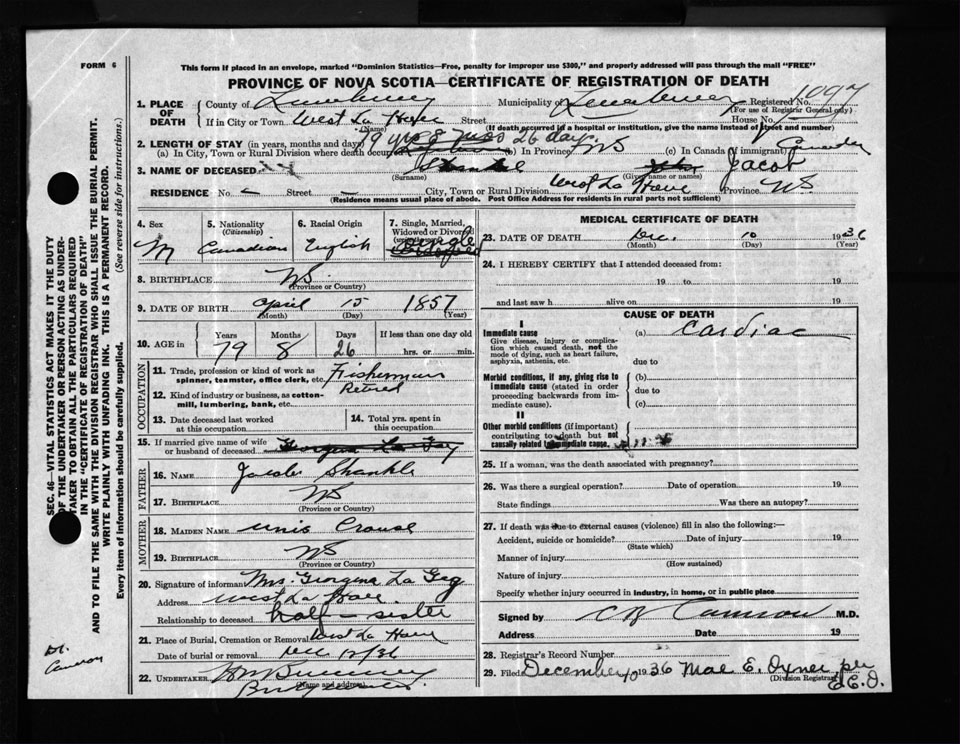 FORM 6
This form if placed in an envelope, marked "Dominion Statistics—Free, penalty for improper use $300," and properly addressed will pass through the mail "FREE"
PROVINCE OF NOVA SCOTIA—CERTIFICATE OF REGISTRATION OF DEATH
1. PLACE OF DEATH
County of Lunenburg Municipality of Lunenburg Registered No. 1097
(For use of Registrar General only)
If in City or Town West La Have Street House No.
(Name) (If death occurred in a hospital or institution, give the name instead of street and number)
2. LENGTH OF STAY (in years, months and days) 79 yrs 8 mos 26 days
(a) In City, Town or Rural Division where death occurred (b) In Province NS (c) In Canada if immigrant Canadian
3. NAME OF DECEASED Jacob
(Surname) (Given name or names)
RESIDENCE No. — Street — City, Town or Rural Division West La Have Province NS
(Residence means usual place of abode. Post Office Address for residents in rural parts not sufficient)
4. Sex M
5. Nationality (Citizenship) Canadian
6. Racial Origin English
7. Single, Married, Widowed or Divorced Single
8. BIRTHPLACE NS
(Province or Country)
9. DATE OF BIRTH April 15 1857
(Month) (Day) (Year)
10. AGE in Years Months Days If less than one day old
79 8 26 hrs. or min.
OCCUPATION
11. Trade, profession or kind of work as spinner, teamster, office clerk, etc. Fisherman
12. Kind of industry or business, as cotton-mill, lumbering, bank, etc. Retired
13. Date deceased last worked at this occupation
14. Total yrs. spent in this occupation
15. If married give name of wife or husband of deceased
FATHER
16. NAME Shankle
17. BIRTHPLACE NS
(Province or Country)
MOTHER
18. MAIDEN NAME Unis Crouse
19. BIRTHPLACE NS
(Province or Country)
20. Signature of informant Mrs. Georgena La
Address West La Have
Relationship to deceased half-sister
21. Place of Burial, Cremation or Removal West La Have
Date of burial or removal Dec 12/36
22. UNDERTAKER
(Name and address)
MEDICAL CERTIFICATE OF DEATH
23. DATE OF DEATH Dec. 10 1936
(Month) (Day) (Year)
24. I HEREBY CERTIFY that I attended deceased from:
19 to 19
and last saw h alive on 19
CAUSE OF DEATH
I
Immediate cause (a) Cardiac
Give disease, injury or complication which caused death, not the mode of dying, such as heart failure, asphyxia, asthenia, etc. due to
Morbid conditions, if any, giving rise to immediate cause (stated in order proceeding backwards from immediate cause). (b)
due to
(c)
II
Other morbid conditions (if important) contributing to death but not causally related to immediate cause.
25. If a woman, was the death associated with pregnancy?
26. Was there a surgical operation? Date of operation 19
State findings Was there an autopsy?
27. If death was due to external causes (violence) fill in also the following:—
Accident, suicide or homicide? Date of injury 19
(State which)
Manner of injury
(How sustained)
Nature of injury
Specify whether injury occurred in industry, in home, or in public place
Signed by M.D.
Address Date 19
28. Registrar's Record Number
29. Filed December 10 1936 Mae E. Oxner per E.O.
(Division Registrar)
SEC. 46—VITAL STATISTICS ACT MAKES IT THE DUTY
OF THE UNDERTAKER OR PERSON ACTING AS UNDERTAKER TO OBTAIN ALL THE PARTICULARS REQUIRED
IN THE "CERTIFICATE OF REGISTRATION OF DEATH"
AND TO FILE THE SAME WITH THE DIVISION REGISTRAR WHO SHALL ISSUE THE BURIAL PERMIT.
WRITE PLAINLY WITH UNFADING INK. THIS IS A PERMANENT RECORD.
Every item of information should be carefully supplied. (See reverse side for instructions.)
Dr.